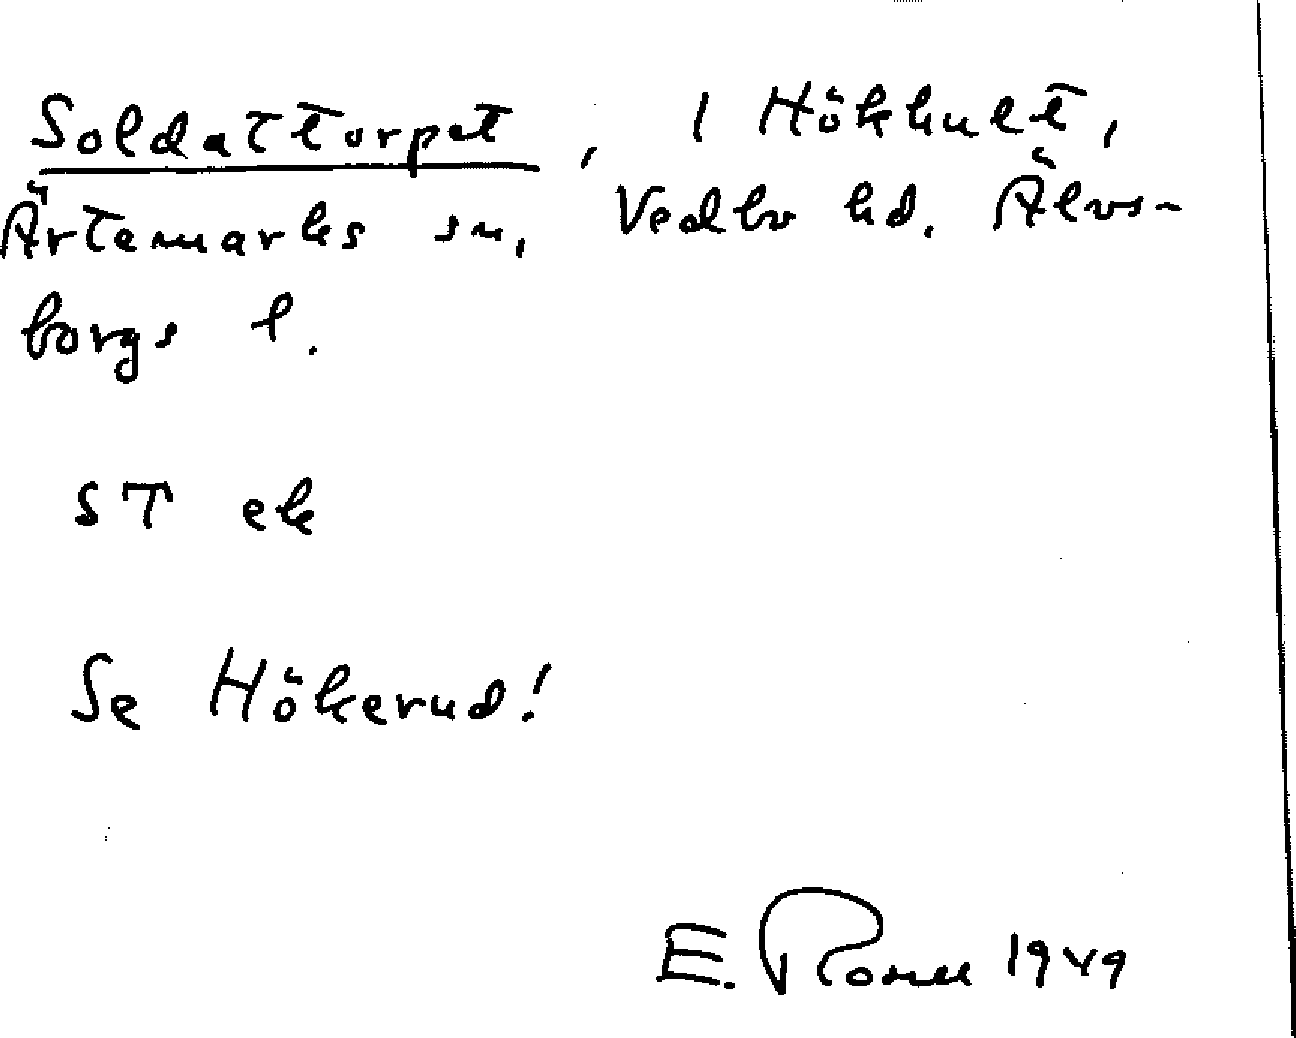 Soldattorpet, 1 Hökhult,
Ärtemarks sn, Vedbo hd. Älvs-
borgs l.
ST ek
Se Hökerud!
E. 1949